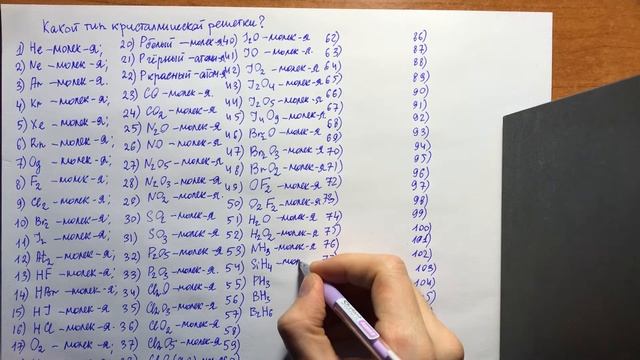 Какой тип кристаллической решетки?
1) He – молек-я;
2) Ne – молек-я;
3) Ar – молек-я.
4) Kr – молек-я;
5) Xe – молек-я;
6) Rn – молек-я;
7) Og – молек-я;
8) F2 – молек-я;
9) Cl2 – молек-я;
10) Br2 – молек-я;
11) I2 – молек-я;
12) At2 – молек-я;
13) HF – молек-я;
14) HBr – молек-я;
15) HI – молек-я;
16) HCl – молек-я;
17) O2 – молек-я;
20) P белый – молек-я
21) P чёрный – атом-я
22) P красный – атом-я
23) CO – молек-я.
24) CO2 – молек-я
25) N2O – молек-я
26) NO – молек-я.
27) N2O5 – молек-я
28) N2O3 – молек-я
29) NO2 – молек-я.
30) SO2 – молек-я
31) SO3 – молек-я
32) P2O5 – молек-я
33) P2O3 – молек-я.
34) Cl2O – молек-я
35) Cl2O3 – молек-я
36) ClO2 – молек-я
37) Cl2O5 – молек-я
40) I2O – молек-я
41) IO – молек-я.
42) IO2 – молек-я
43) I2O4 – молек-я
44) I2O5 – молек-я
45) I4O9 – молек-я
46) Br2O – молек-я
47) BrO2 – молек-я
48) BrO3 – молек-я
49) OF2 – молек-я
50) O2F2 – молек-я
51) H2O – молек-я
52) H2O2 – молек-я
53) NH3 – молек-я
54) SiH4 – мол
55) PH3
56) BH3
57) B2H6
58)
59)
62)
63)
64)
65)
66)
67)
68)
69)
70)
71)
72)
73)
74)
75)
76)
86)
87)
88)
89)
90)
91)
92)
93)
94)
95)
96)
97)
98)
99)
100)
101)
102)
103)
104)